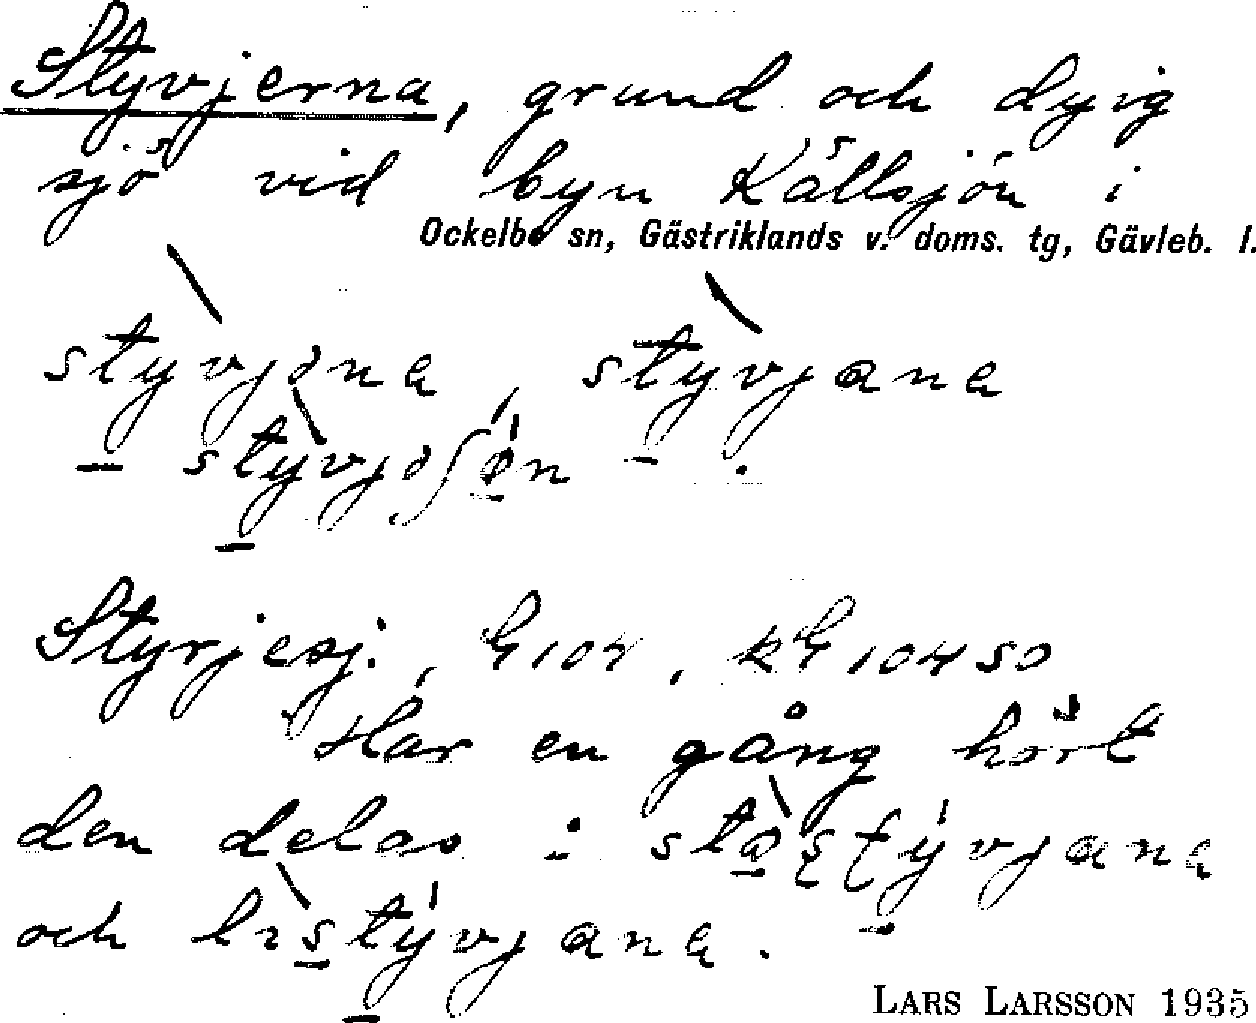 Styvjerna, grund och dyig
sjö vid byn Källsjön i
Ockelbo sn, Gästriklands v. doms. tg, Gävleb. l.
styvjəna, styvjana
styvjəʃøn.
Styrjesj., h104, kh10450
Har en gång hört
den delas i
och
LARS LARSSON 1935